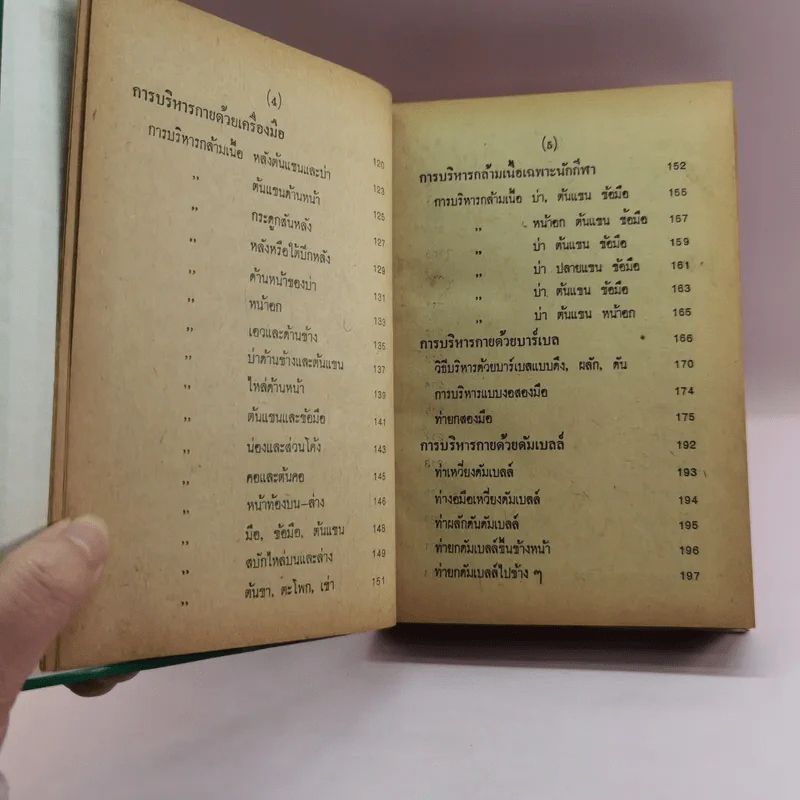 (4)
การบริหารกายด้วยเครื่องมือ
การบริหารกล้ามเนื้อ หลังต้นแขนและบ่า 120
,, ต้นแขนด้านหน้า 123
,, กระดูกสันหลัง 125
,, หลังหรือใต้ปีกหลัง 127
,, ด้านหน้าของบ่า 129
,, หน้าอก 131
,, เอวและด้านข้าง 133
,, บ่าด้านข้างและต้นแขน 135
,, ไหล่ด้านหน้า 137
,, ต้นแขนและข้อมือ 139
,, น่องและส่วนโค้ง 141
,, คอและต้นคอ 143
,, หน้าท้องบน-ล่าง 145
,, มือ, ข้อมือ, ต้นแขน 146
,, สบักไหล่บนและล่าง 148
,, ต้นขา, ตะโพก, เข่า 149
151
(5)
การบริหารกล้ามเนื้อเฉพาะนักกีฬา 152
การบริหารกล้ามเนื้อ บ่า, ต้นแขน ข้อมือ 155
,, หน้าอก ต้นแขน ข้อมือ 157
,, บ่า ต้นแขน ข้อมือ 159
,, บ่า ปลายแขน ข้อมือ 161
,, บ่า ต้นแขน ข้อมือ 163
,, บ่า ต้นแขน หน้าอก 165
การบริหารกายด้วยบาร์เบล 166
วิธีบริหารด้วยบาร์เบลแบบดึง, ผลัก, ดัน 170
การบริหารแบบงอสองมือ 174
ท่ายกสองมือ 175
การบริหารกายด้วยดัมเบลล์ 192
ท่าเหวี่ยงดัมเบลล์ 193
ท่างอมือเหวี่ยงดัมเบลล์ 194
ท่าผลักดันดัมเบลล์ 195
ท่ายกดัมเบลล์ขึ้นข้างหน้า 196
ท่ายกดัมเบลล์ไปข้าง ๆ 197